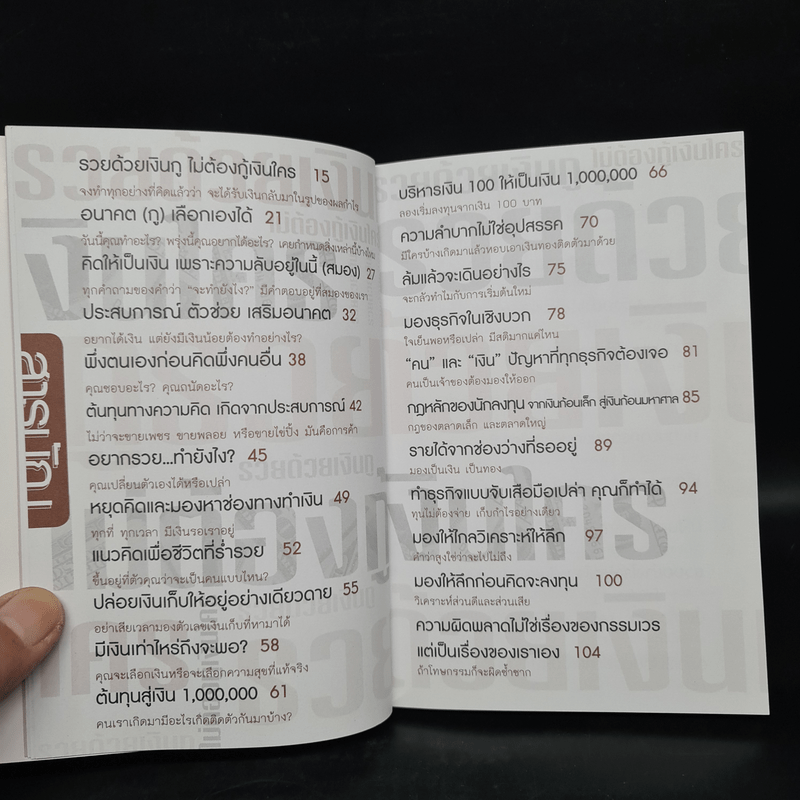 สารบัญ
รวยด้วยเงินกู ไม่ต้องกู้เงินใคร 15
จงทำทุกอย่างที่คิดแล้วว่า จะได้รับเงินกลับมาในรูปของผลกำไร
อนาคต (กู) เลือกเองได้ 21
วันนี้คุณทำอะไร? พรุ่งนี้คุณอยากได้อะไร? เคยกำหนดสิ่งเหล่านี้บ้างไหม
คิดให้เป็นเงิน เพราะความลับอยู่ในนี้ (สมอง) 27
ทุกคำถามของคำว่า "จะทำยังไง?" มีคำตอบอยู่ที่สมองของเรา
ประสบการณ์ ตัวช่วย เสริมอนาคต 32
อยากได้เงิน แต่ยังมีเงินน้อยต้องทำอย่างไร?
พึ่งตนเองก่อนคิดพึ่งคนอื่น 38
คุณชอบอะไร? คุณถนัดอะไร?
ต้นทุนทางความคิด เกิดจากประสบการณ์ 42
ไม่ว่าจะขายเพชร ขายพลอย หรือขายไข่ปิ้ง มันคือการค้า
อยากรวย...ทำยังไง? 45
คุณเปลี่ยนตัวเองได้หรือเปล่า
หยุดคิดและมองหาช่องทางทำเงิน 49
ทุกที่ ทุกเวลา มีเงินรอเราอยู่
แนวคิดเพื่อชีวิตที่ร่ำรวย 52
ขึ้นอยู่ที่ตัวคุณว่าจะเป็นคนแบบไหน?
ปล่อยเงินเก็บให้อยู่อย่างเดียวดาย 55
อย่าเสียเวลามองตัวเลขเงินเก็บที่หามาได้
มีเงินเท่าไหร่ถึงจะพอ? 58
คุณจะเลือกเงินหรือจะเลือกความสุขที่แท้จริง
ต้นทุนสู่เงิน 1,000,000 61
คนเราเกิดมามีอะไรเกิดติดตัวกันมาบ้าง?
บริหารเงิน 100 ให้เป็นเงิน 1,000,000 66
ลองเริ่มลงทุนจากเงิน 100 บาท
ความลำบากไม่ใช่อุปสรรค 70
มีใครบ้างเกิดมาแล้วหอบเอาเงินทองติดตัวมาด้วย
ล้มแล้วจะเดินอย่างไร 75
จะกลัวทำไมกับการเริ่มต้นใหม่
มองธุรกิจในเชิงบวก 78
ใจเย็นพอหรือเปล่า มีสติมากแค่ไหน
"คน" และ "เงิน" ปัญหาที่ทุกธุรกิจต้องเจอ 81
คนเป็นเจ้าของต้องมองให้ออก
กฎหลักของนักลงทุน จากเงินก้อนเล็ก สู่เงินก้อนมหาศาล 85
กฎของตลาดเล็ก และตลาดใหญ่
รายได้จากช่องว่างที่รออยู่ 89
มองเป็นเงิน เป็นทอง
ทำธุรกิจแบบจับเสือมือเปล่า คุณก็ทำได้ 94
ทุนไม่ต้องจ่าย เก็บกำไรอย่างเดียว
มองให้ไกลวิเคราะห์ให้ลึก 97
คำว่าสูงใช่ว่าจะไปไม่ถึง
มองให้ลึกก่อนคิดจะลงทุน 100
วิเคราะห์ส่วนดีและส่วนเสีย
ความผิดพลาดไม่ใช่เรื่องของกรรมเวร
แต่เป็นเรื่องของเราเอง 104
ถ้าโทษกรรมก็จะผิดซ้ำซาก